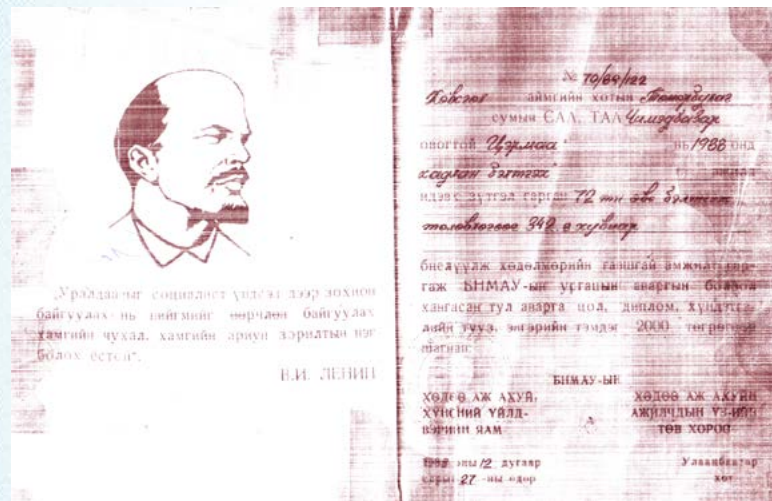 „Уралдааныг социалист үндсэн дээр зохион
байгуулах нь нийгмийг өөрчлөн байгуулах
хамгийн чухал, хамгийн ариун зорилтын нэг
болох ёстой".
В.И. ЛЕНИН
№ 70/69/122
Хөвсгөл аймгийн хотын Төмөрбулаг
сумын САА, ТАА Чимэдбазар
овогтой Цэрмаа нь 1988 онд
хадлан бэлтгэх ажилд
идэвх зүтгэл гарган 72 тн өвс бэлтгэж
төлөвлөгөөг 342.8 хувиар
биелүүлж хөдөлмөрийн гайхамшиг амжилт гар-
гаж БНМАУ-ын аваргын болзол
хангасан тул аварга цол, диплом, хүндэт-
лэлийн тууз, энгэрийн тэмдэг 2000 төгрөгөөр
шагнав.
БНМАУ-ЫН
ХӨДӨӨ АЖ АХУЙ,
ХҮНСНИЙ ҮЙЛД-
ВЭРИЙН ЯАМ
ХӨДӨӨ АЖ АХУЙН
АЖИЛЧДЫН ҮЭ-ИЙН
ТӨВ ХОРОО
1988 оны 12 дугаар
сарын 27-ны өдөр
Улаанбаатар
хот